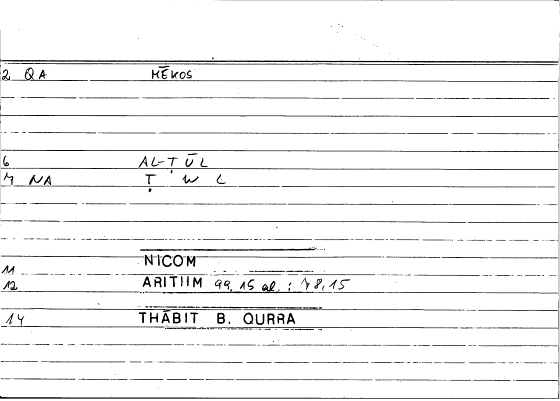 2 QA MĒKOS
6 AL-ṬŪL
7 NA Ṭ W L
11 NICOM
12 ARITIIM 99,15 al. : 78,15
14 THĀBIT B. QURRA